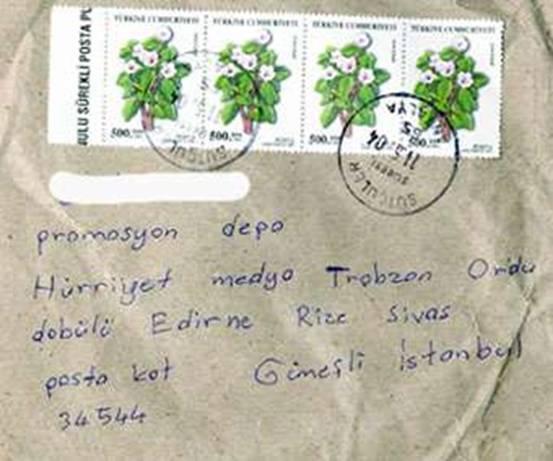 TÜRKİYE CUMHURİYETİ TÜRKİYE CUMHURİYETİ TÜRKİYE CUMHURİYETİ TÜRKİYE CUMHURİYETİ
SÜREKLİ POSTA
500. 500. 500. 500.
SÜTÇÜLER
11.5.04
promosyon depo
Hürriyet medya Trabzon Ordu
dobülü Edirne Rize Sivas
posta kot Gineşli İstanbul
34544